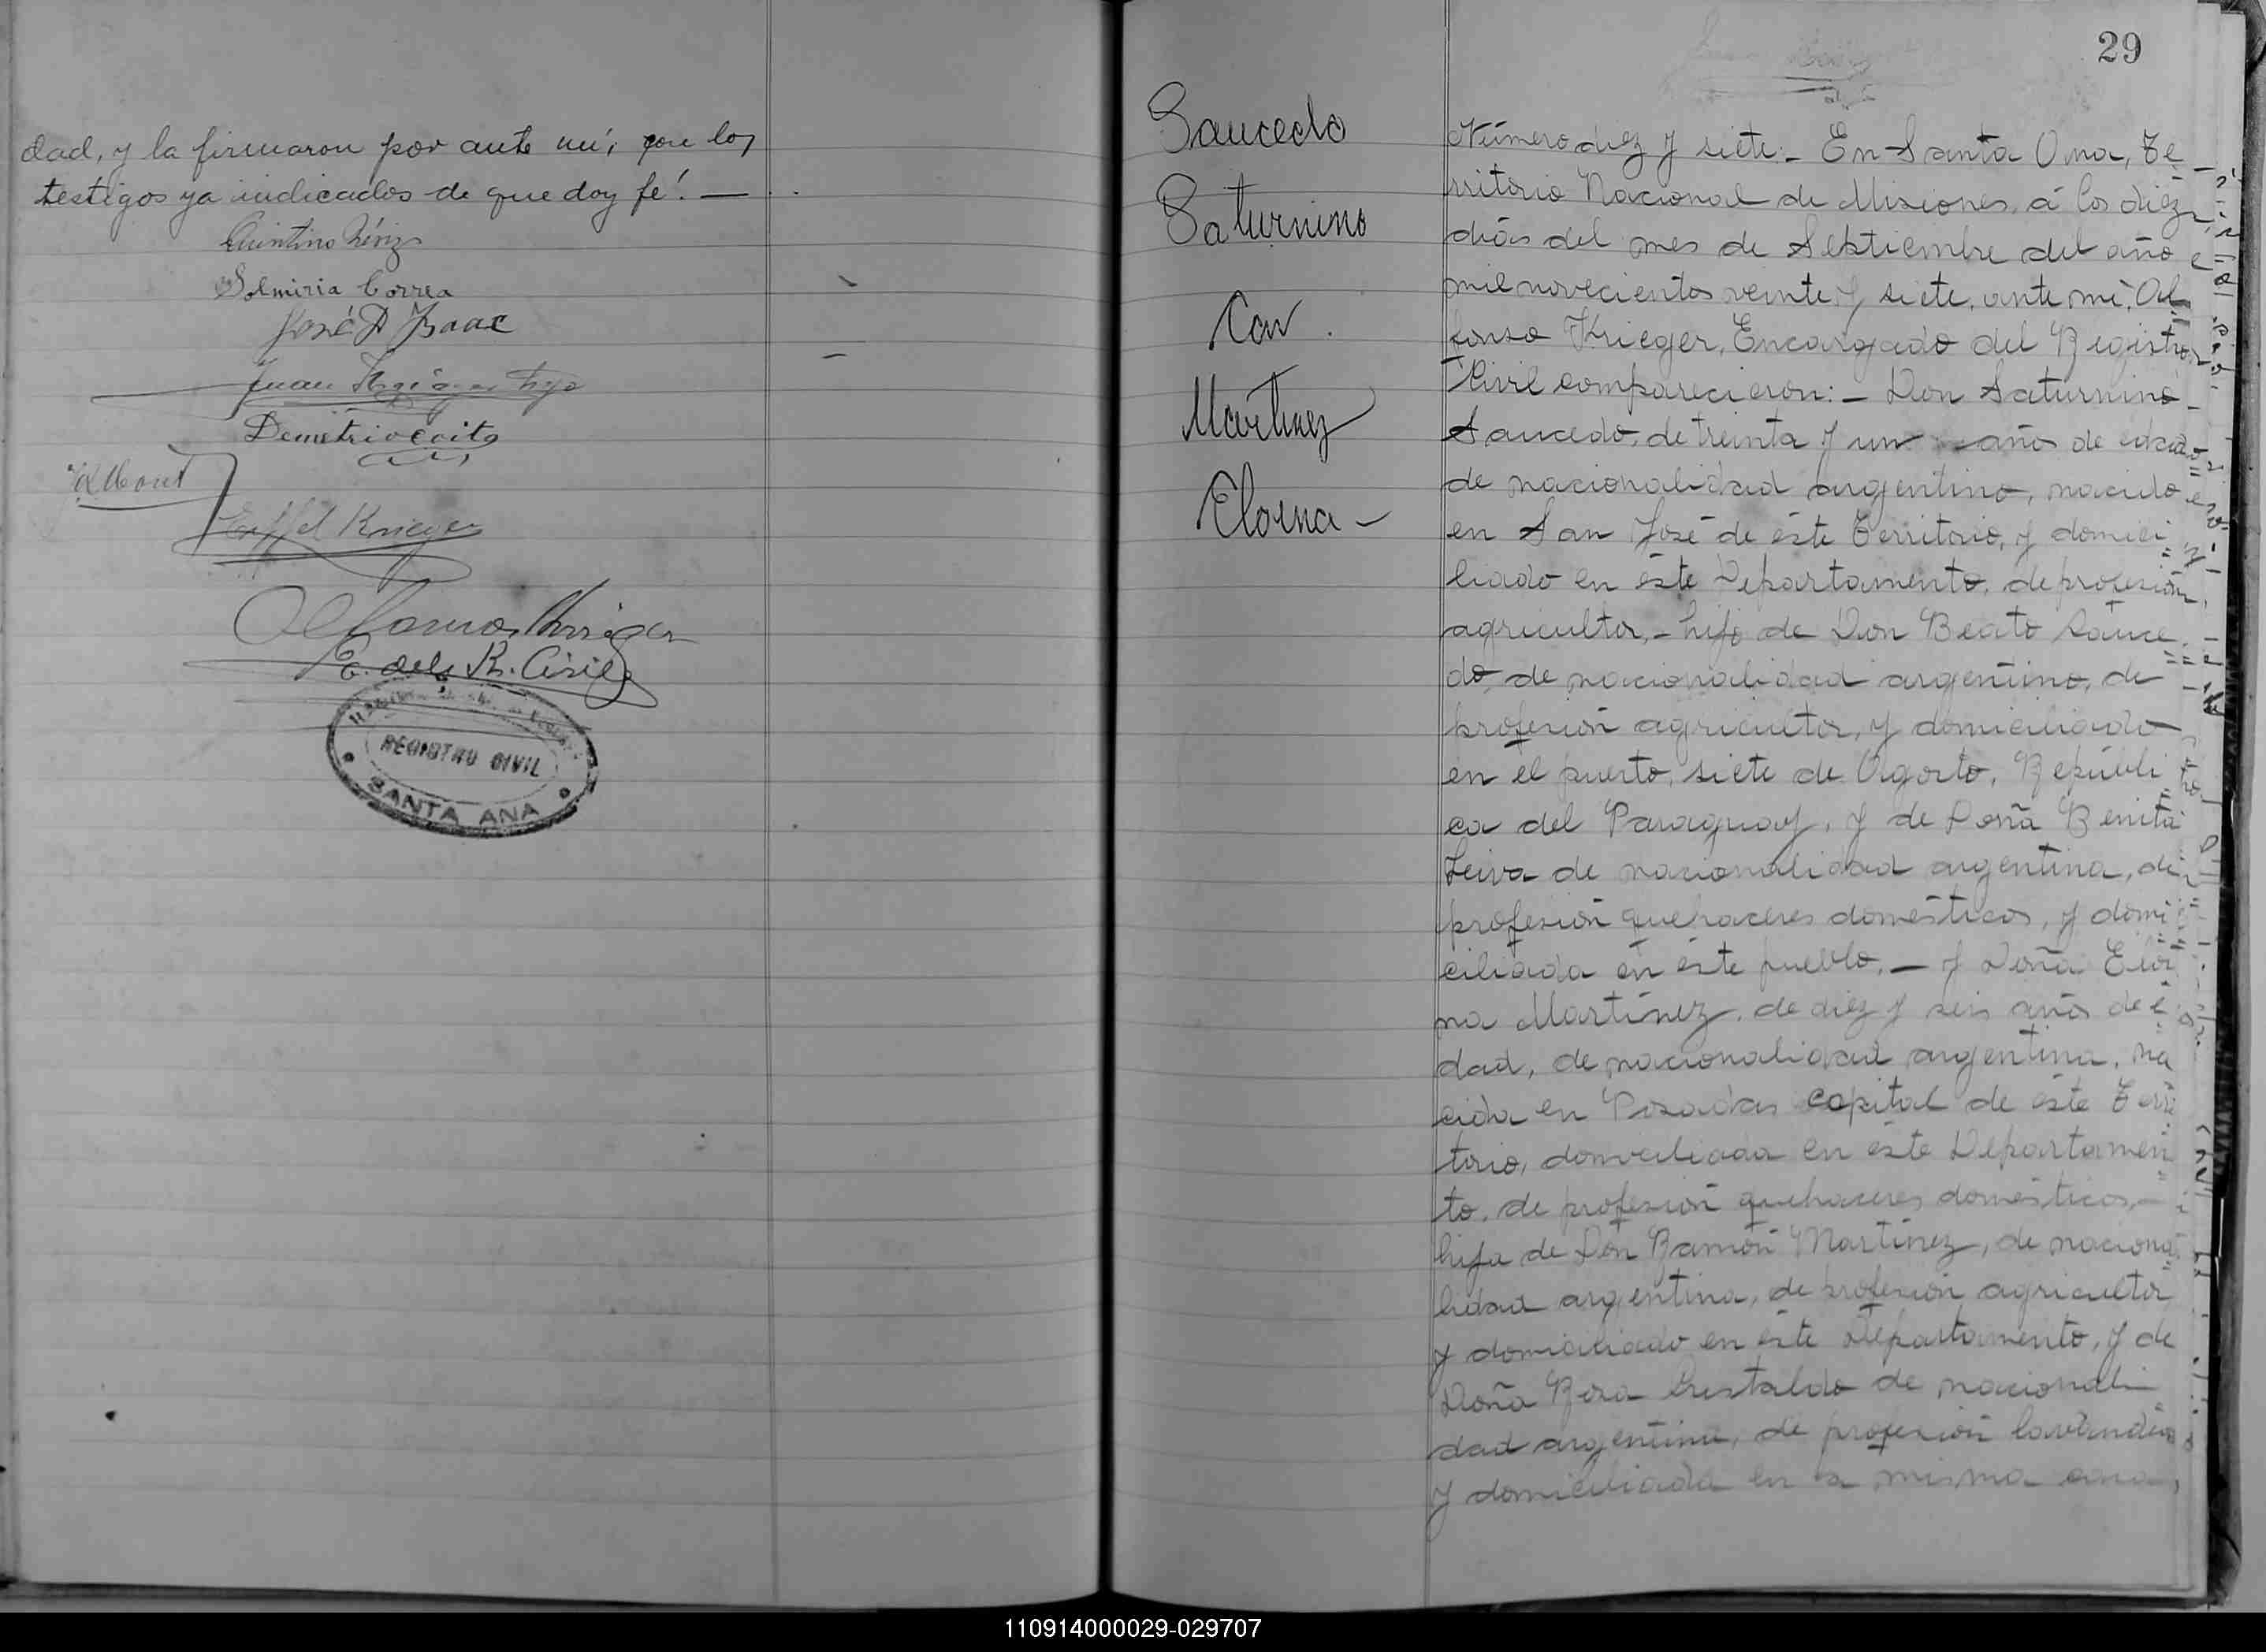 dad, y la firmaron por ante mí, con los
testigos ya indicados de que doy fé! —
Quintino
Solmiria Correa
José D Isaac
Juan
Demétrio
Eiffel Krieger
Alfonso Krieger
E. del R. Civil
REGISTRO CIVIL
SANTA ANA
29
Saucedo
Saturnino
Con
Martinez
Eloina —
Número diez y siete:— En Santa Ana, Te
rritorio Nacional de Misiones, á los diéz
diás del mes de Septiembre del año
mil novecientos veinte y siete, ante mí, Al
fonso Krieger, Encargado del Registro
Civil comparecieron:— Don Saturnino
Saucedo, de treinta y un años de edad
de nacionalidad argentino, nacido
en San José de éste Territorio, y domici
liado en éste Departamento, de profesión
agricultor,— hijo de Don Beato Sauce
do, de nacionalidad argentino, de
profesión agricultor, y domiciliado
en el puerto, siete de Agosto, Repúbli
ca del Paraguay, y de Doña Benita
Leiva de nacionalidad argentina, de
profesión quehaceres domésticos, y domi
ciliada en éste pueblo.— y Doña Eloi
na Martínez, de diez y seis años de e
dad, de nacionalidad argentina, na
cida en Posadas capital de éste Terri
torio, domiciliada en éste Departamen
to, de profesión quehaceres domésticos,—
hija de Don Ramón Martínez, de naciona
lidad argentina, de profesión agricultor
y domiciliado en éste Departamento, y de
Doña Rosa Cristaldo de nacionali
dad argentina, de profesión lavandera
y domiciliada en la misma casa,
110914000029-029707